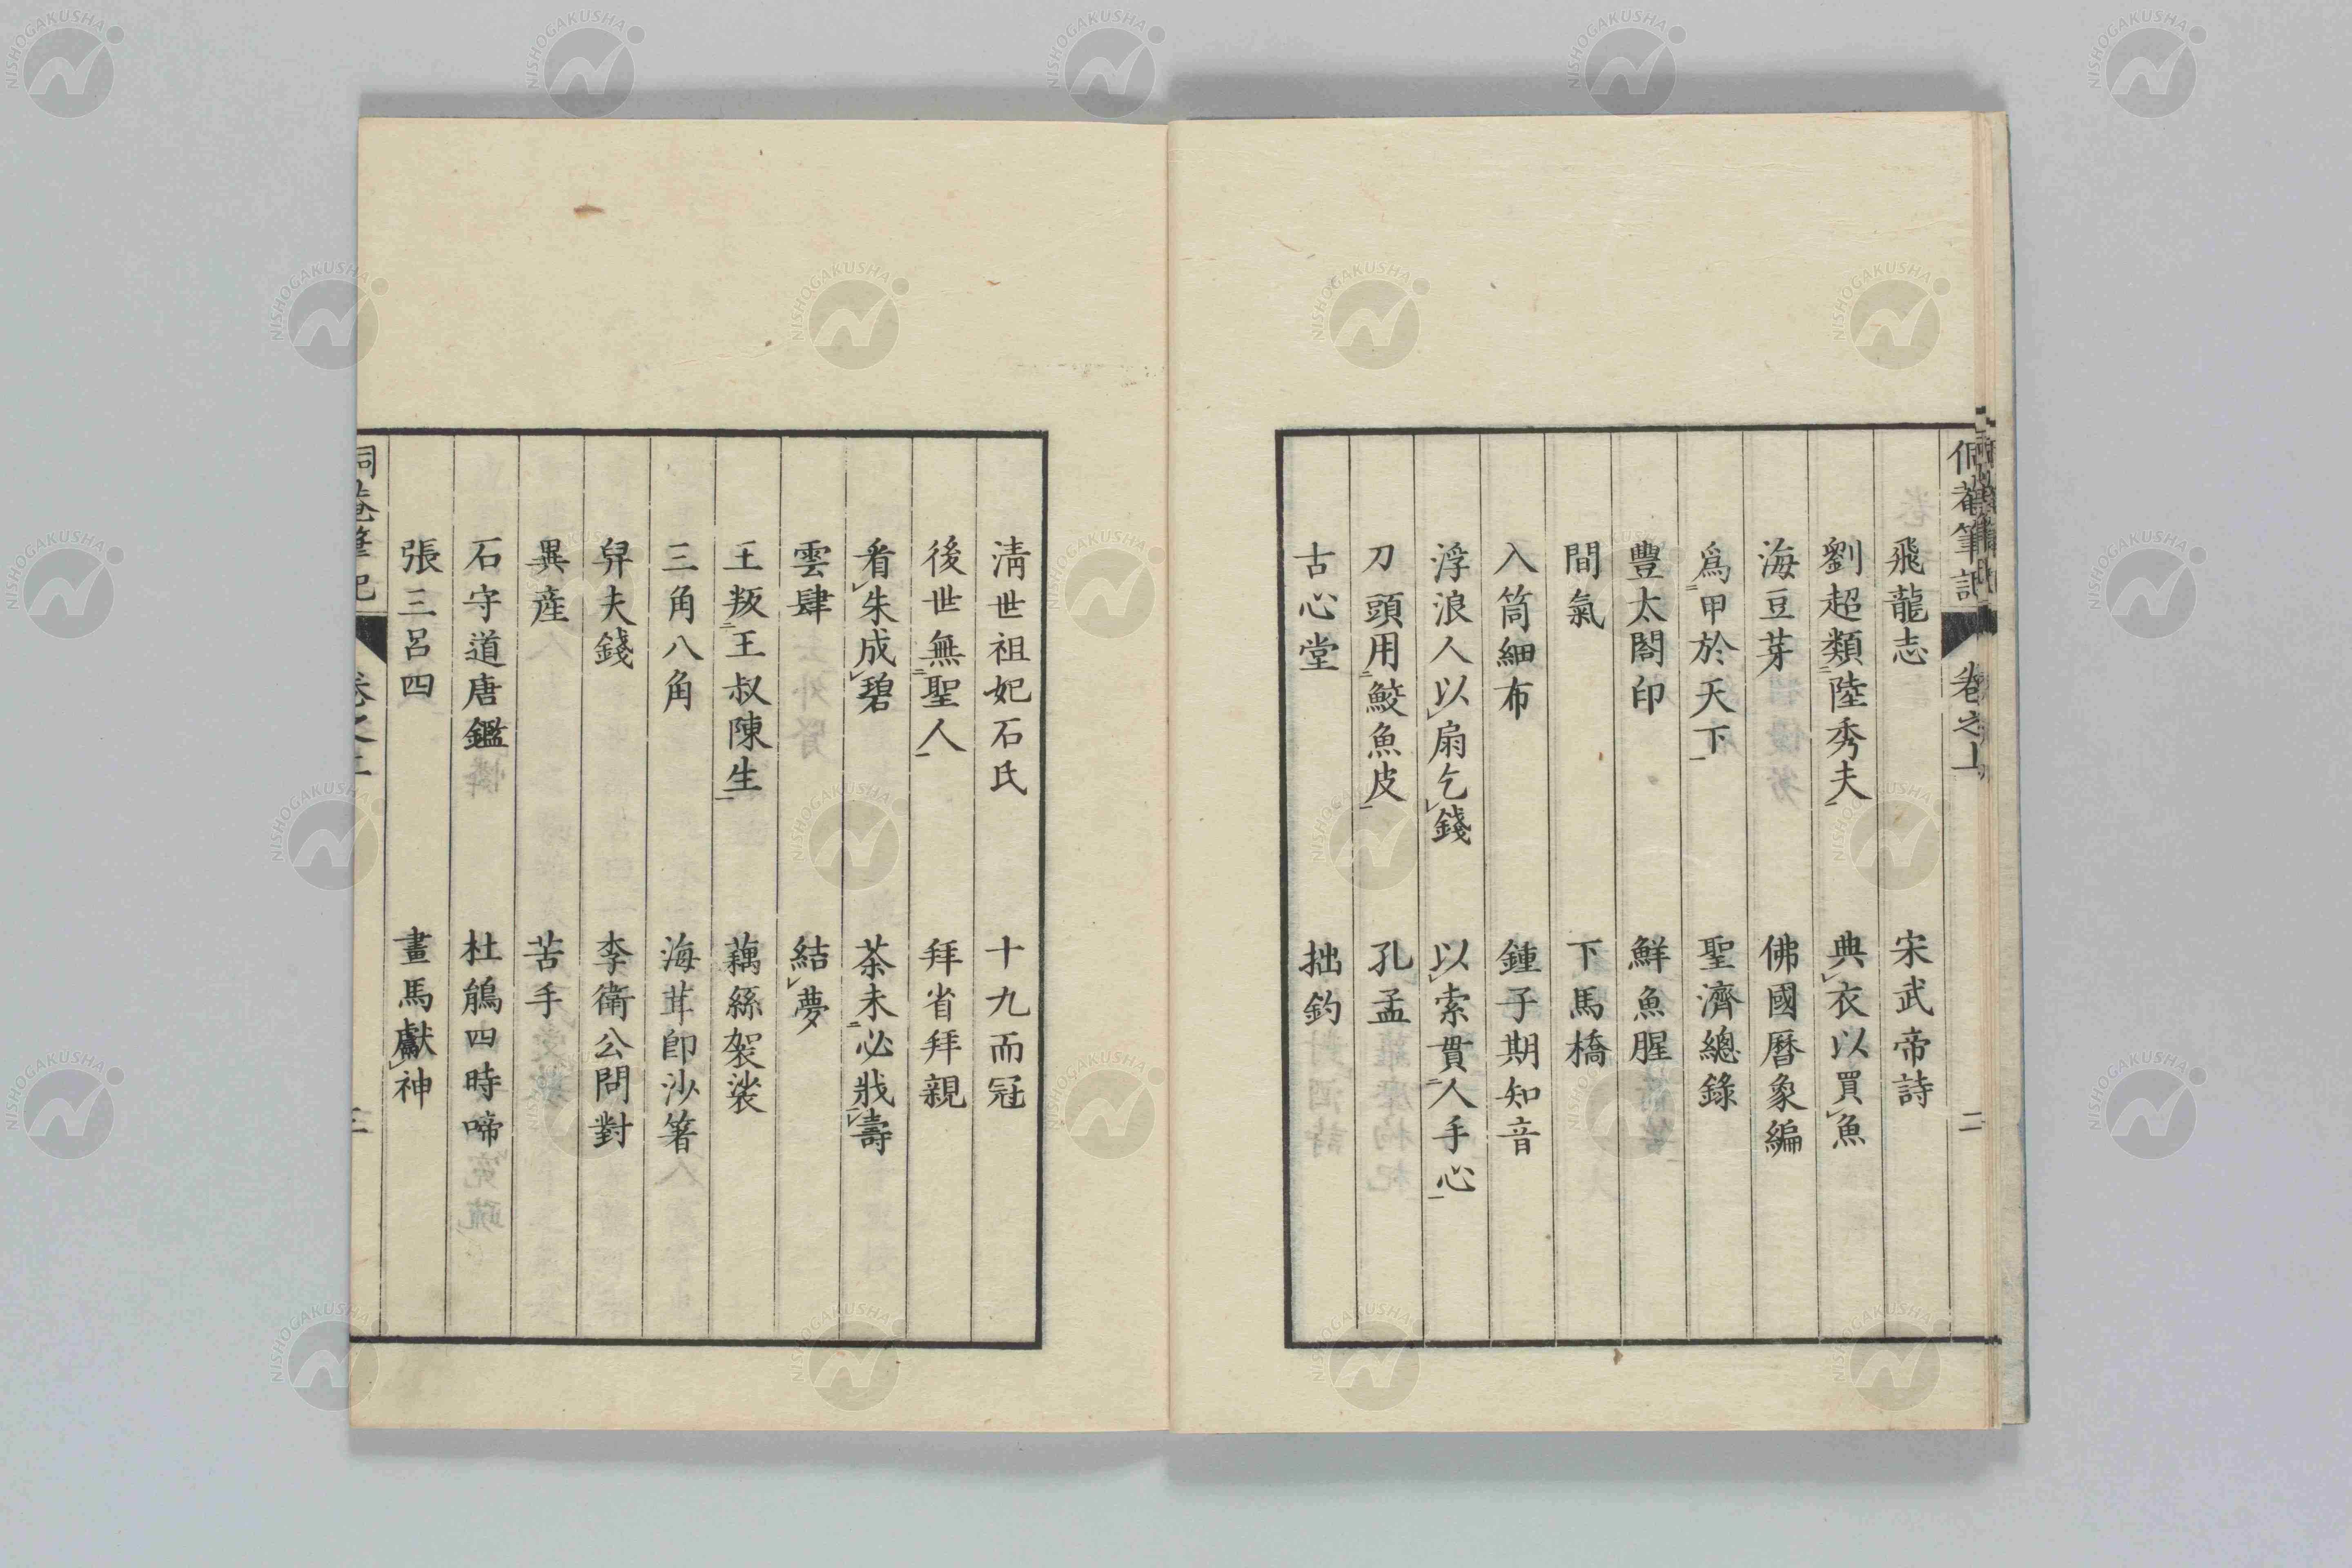 侗菴筆記 卷之上 二
飛龍志 宋武帝詩
劉超類二陸秀夫一 典レ衣以買レ魚
海豆芽 佛國曆象編
爲二甲於天下一 聖濟總錄
豐太閤印 鮮魚腥
間氣 下馬橋
入筒細布 鍾子期知音
浮浪人以レ扇乞レ錢 以レ索貫二人手心一
刀頭用二鮫魚皮一 孔孟
古心堂 拙釣
淸世祖妃石氏 十九而冠
後世無二聖人一 拜省拜親
看レ朱成レ碧 茶未二必戕一レ壽
雲肆 結レ夢
王叛二王叔陳生一 藕絲袈裟
三角八角 海茸卽沙箸
舁夫錢 李衛公問對
異產 苦手
石守道唐鑑 杜鵑四時啼
張三呂四 畫馬獻レ神
侗菴筆記 卷之上 三
NISHOGAKUSHA